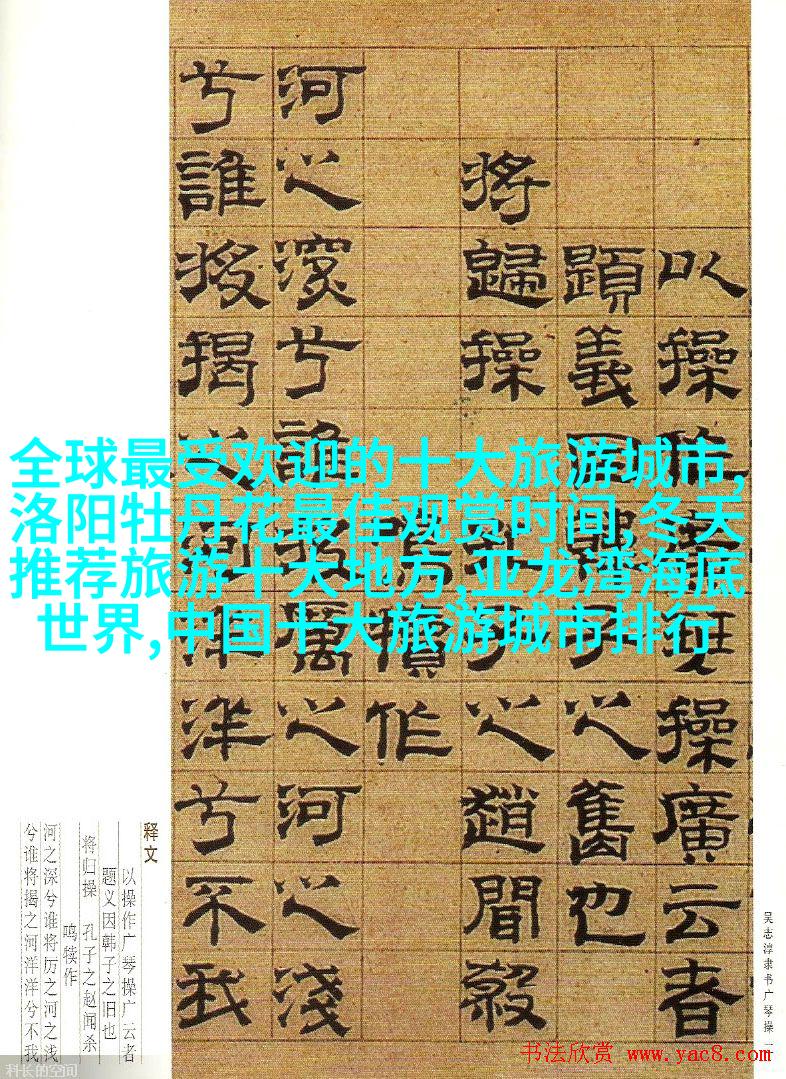 全球最受欢迎的十大旅游城市,
洛阳牡丹花最佳观赏时间,冬天
推荐旅游十大地方,亚龙湾海底
世界,中国十大旅游城市排行
以操作廣琴操廣云者
題義因韓子之舊也
將歸操 孔子之趙聞殺
鳴犢作
河之深兮誰將厲之河之淺
兮誰將揭之河洋洋兮不我
释文
以操作广琴操广云者
题义因韩子之旧也
将归操 孔子之赵闻杀
鸣犊作
河之深兮谁将历之河之浅
兮谁将揭之河洋洋兮不我
吴志淳隶书广琴操
书法欣赏 www.yac8.com
科长的空间